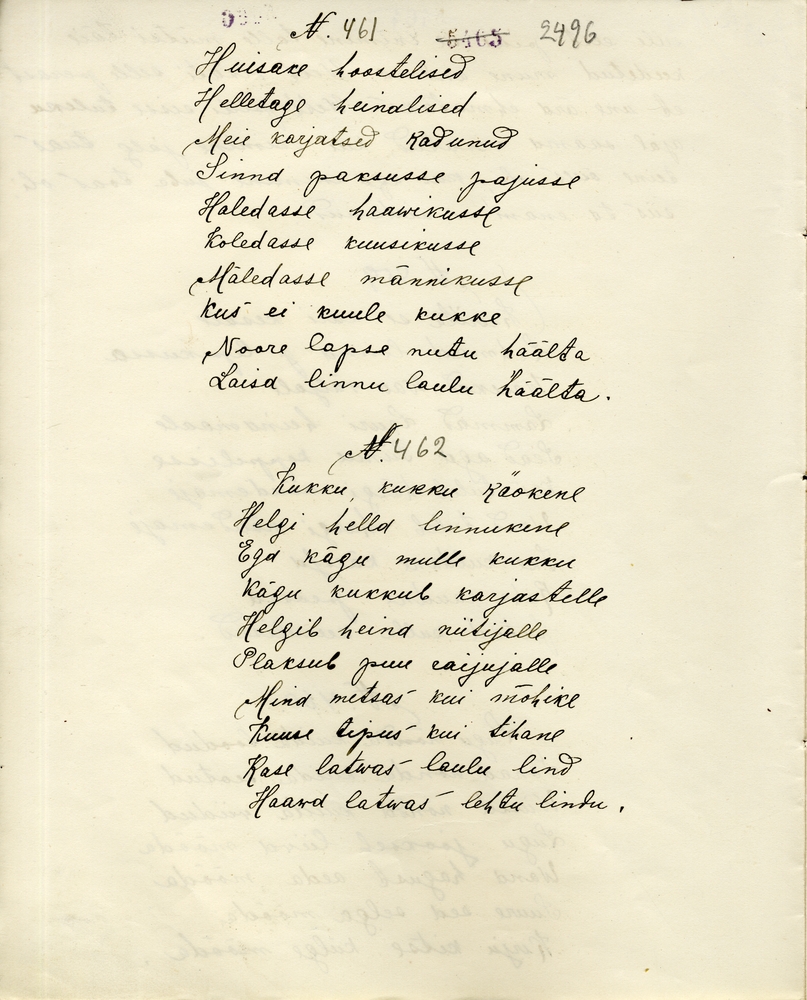 N. 461 5465 2496
Huisake hoostelised
Helletage heinalised
Meie karjatsed kadunud
Sinna paksusse pajusse
Haledasse haawikusse
Koledasse kuusikusse
Mäledasse männikusse
Kus ei kuule kukke
Noore lapse nutu häälta
Laisa linnu laulu häälta.
N. 462
Kukku, kukku käokene
Helgi hella linnukene
Ega kägu mulle kukku
Kägu kukkub karjastelle
Helgib heina niitijalle
Plaksub puu raijujalle
Mina metsas kui mõhike
Kuuse tipus kui tihane
Kase latwas laulu lind
Haawa latwas lehtu lindu.